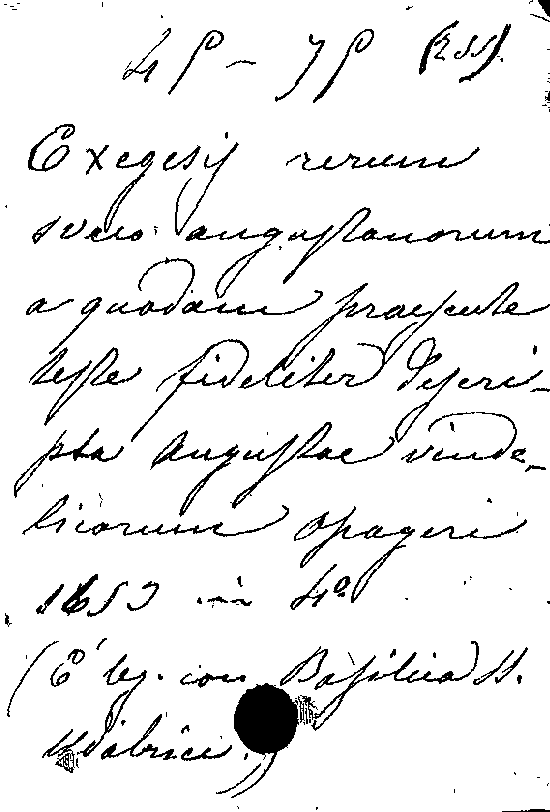 4 P - 7 P (255).
Exegesis rerum
sveco augustanorum
a quodam praesente
teste fideliter descri-
pta Augustae vinde-
licorum Apageri
1653 in 4º
(È leg. con Basilica SS.
Udalrici.)